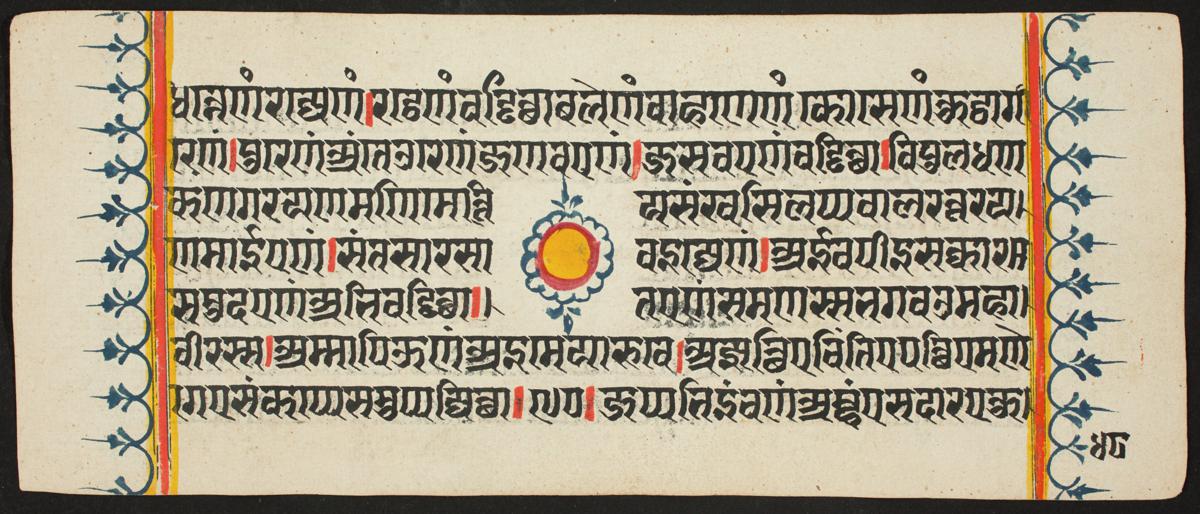 धन्नेणं रज्जेणं।रट्ठेणं वड्ढित्था बलेणं वाहणेणं कोसेणं कोट्ठागा
रेणं।पुरेणं अंतेउरेणं जणवएणं।जसवएणं वड्ढित्था।विपुलधण
कणगरयणमणिमोत्ति यसंखसिलप्पवालरत्तरय।
णमाईएणं।संतसारसा वइज्जेणं।अईवपीइसक्कारेणं
समुदएणं अभिवड्ढित्था।। तएणं समणस्स भगवओ महा।
वीरस्स।अम्मापिऊणं अयमेयारूवे।अब्भत्थिए चिंतिए पत्थिए मणो
गए संकप्पे समुप्पज्जित्था।।जप्पभिइं चणं अम्हं एसदारए कु
४८